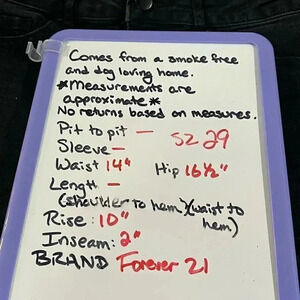 Comes from a smoke free
and dog loving home.
*Measurements are
approximate*
No returns based on measures.
Pit to pit — SZ 29
Sleeve —
Waist 14" Hip 16½"
Length —
(shoulder to hem)(waist to hem)
Rise: 10"
Inseam: 2"
BRAND Forever 21